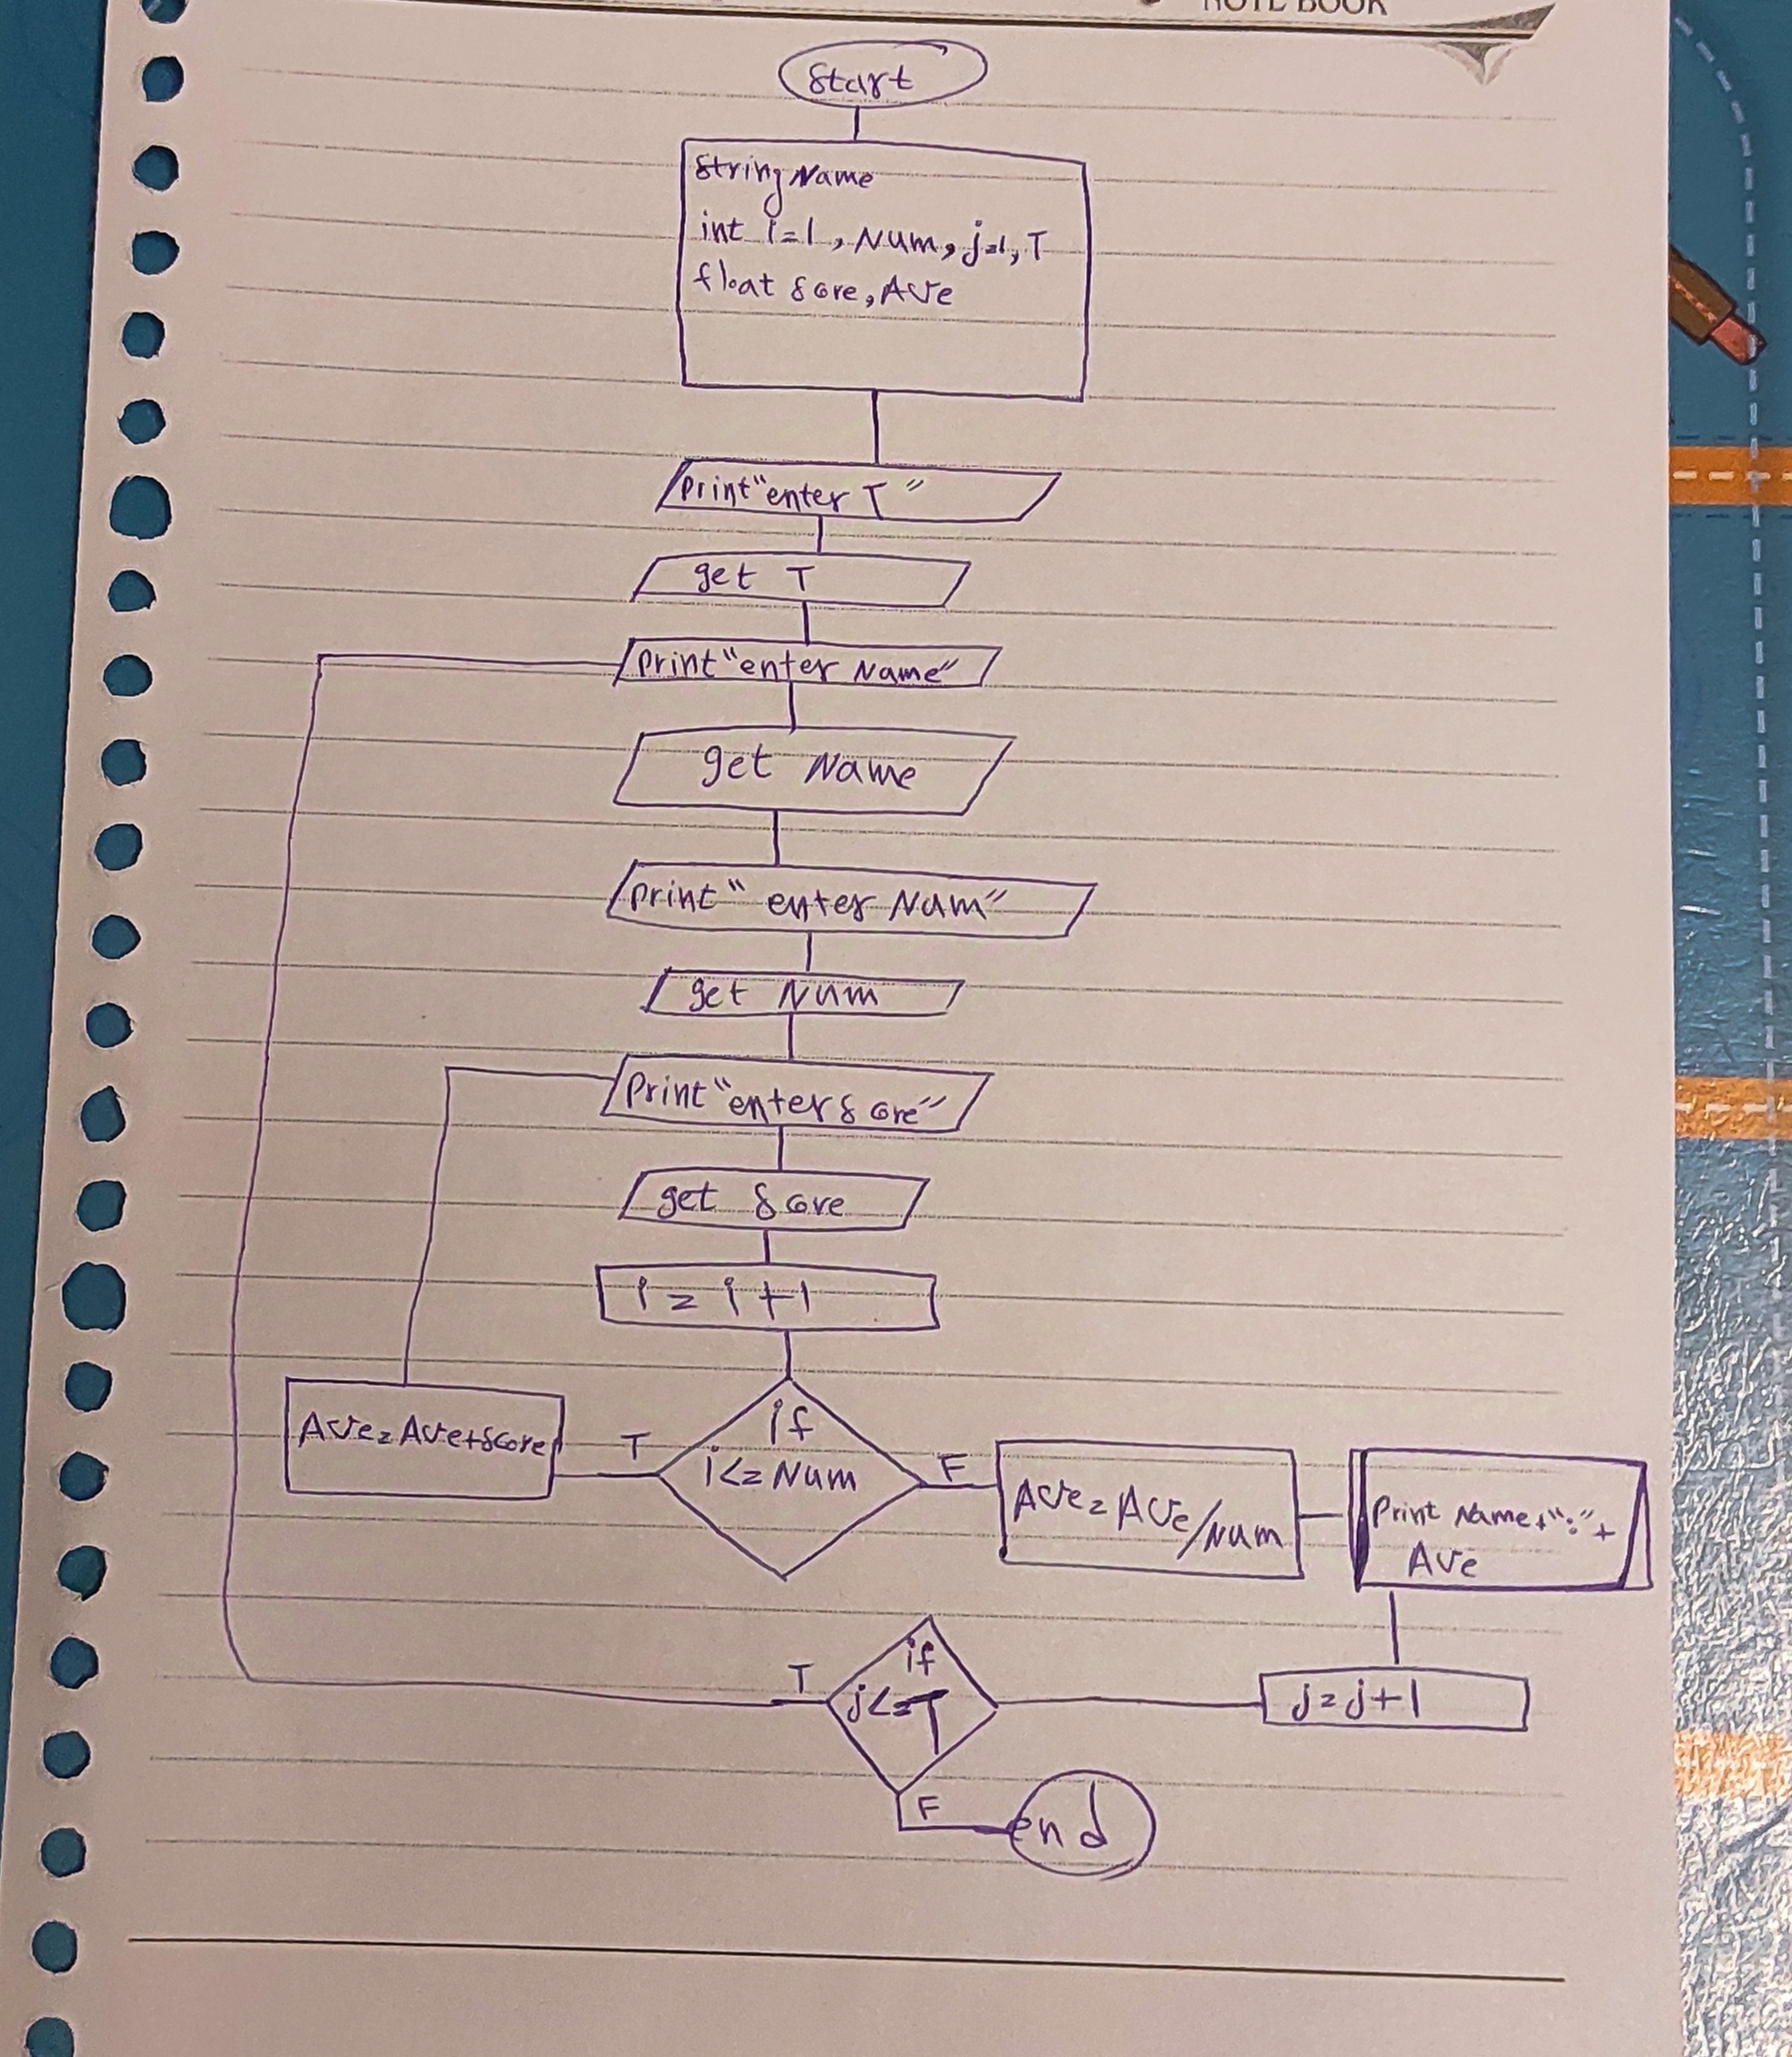 NOTE BOOK
Start
String Name
int i=1, Num, j=1, T
float Score, Ave
Print "enter T"
get T
Print "enter Name"
get Name
Print "enter Num"
get Num
Print "enter Score"
get Score
i = i + 1
if
i<=Num
T
Ave=Ave+Score
F
Ave=Ave/Num
Print Name+":"+
Ave
j=j+1
if
j<=T
T
F
end